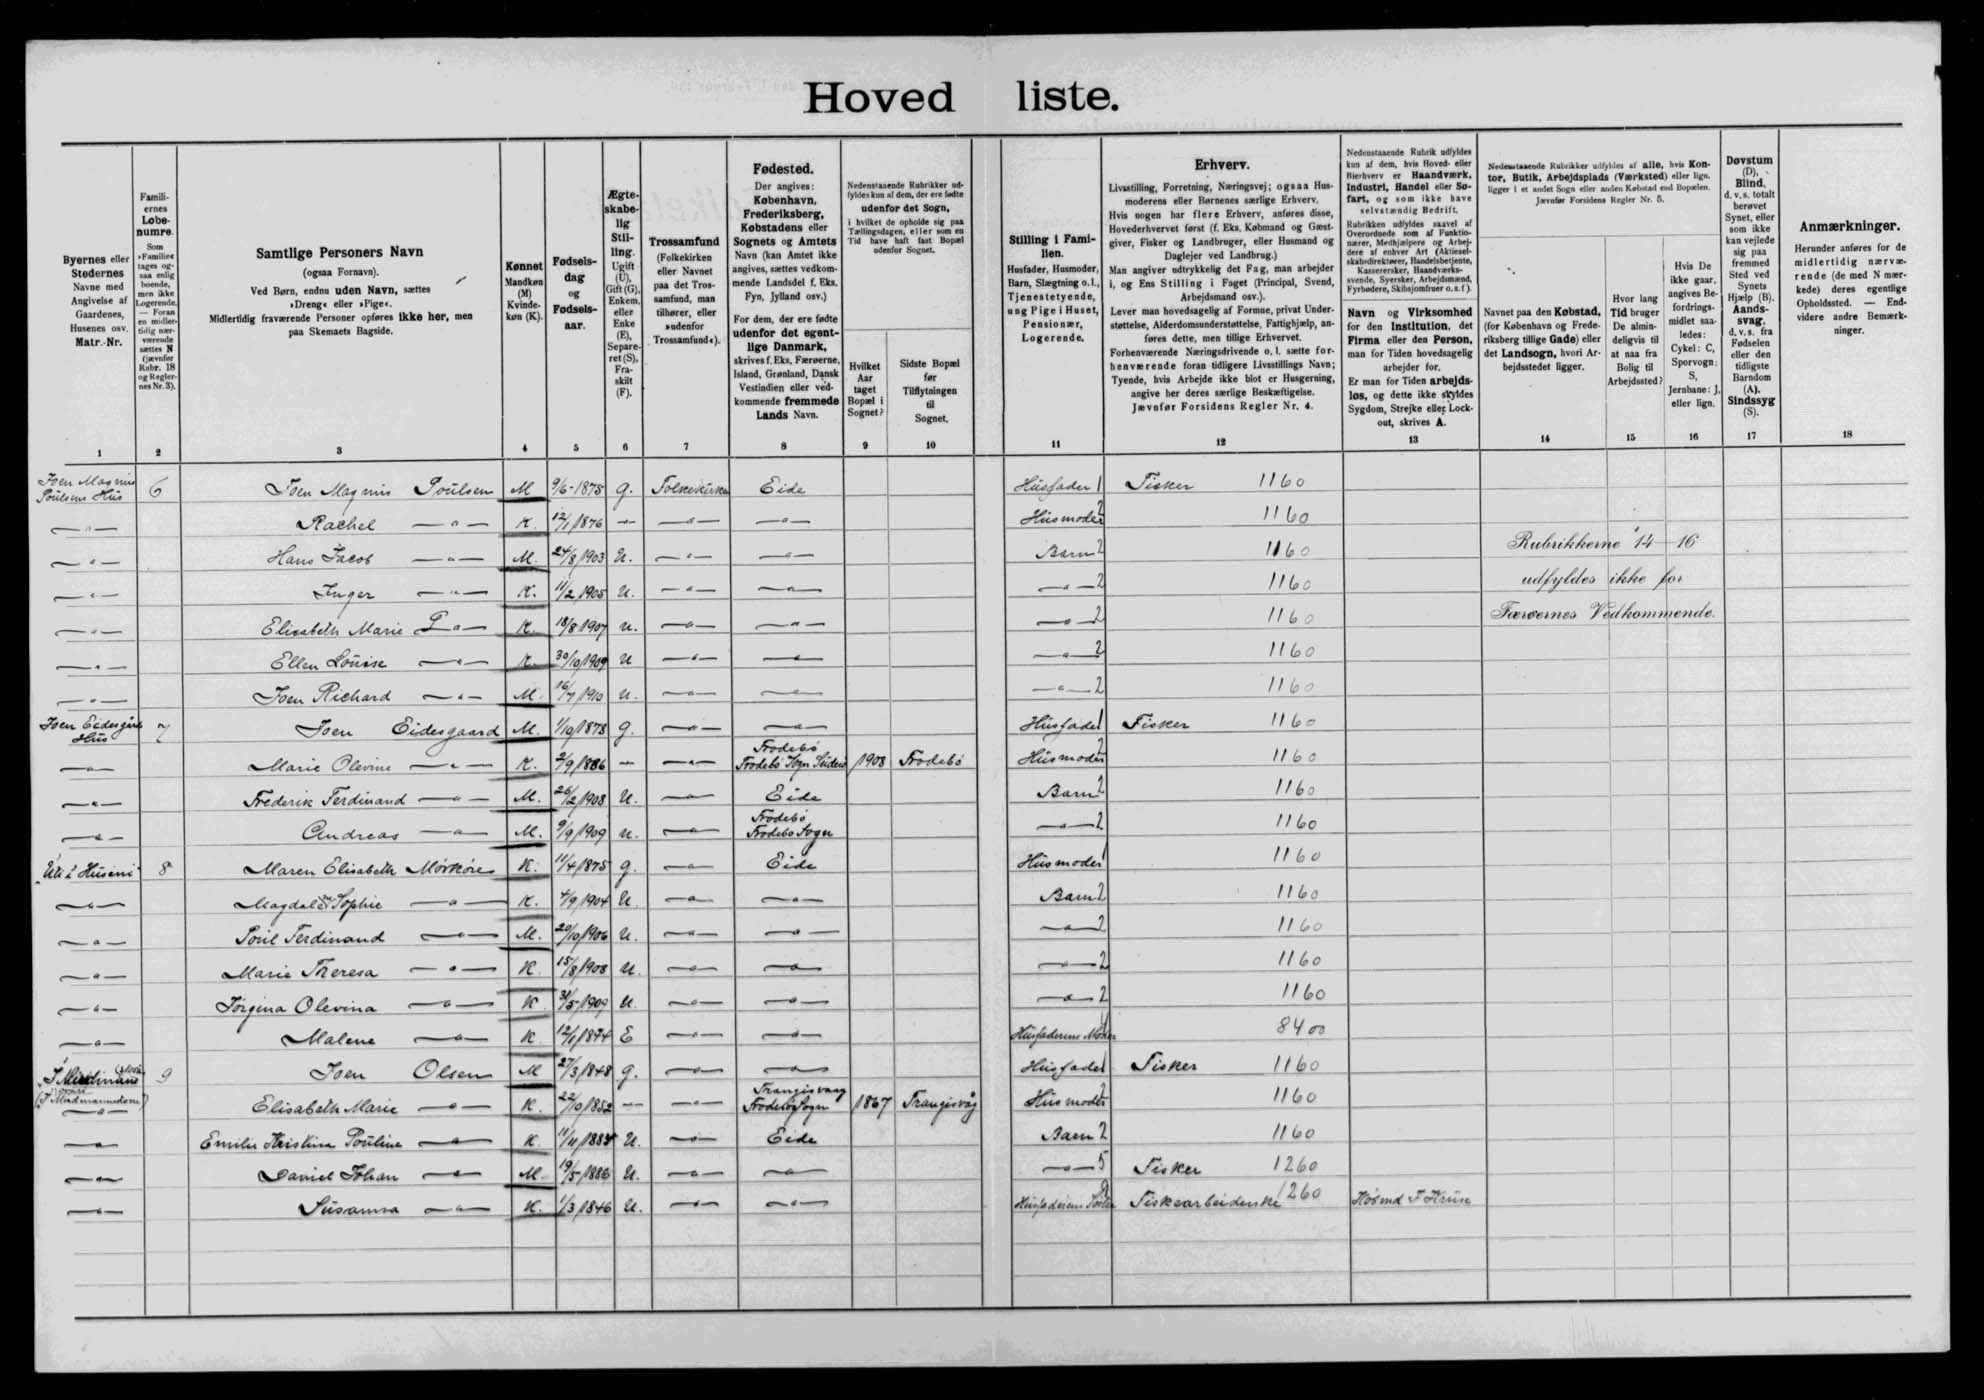 Hoved liste.
Byernes eller Stedernes Navne med Angivelse af Gaardenes, Husenes osv. Matr.-Nr.
Familiernes Løbenumre. Som »Familie« tages ogsaa enlig boende, men ikke Logerende. — Foran en midlertidig nærværende sættes N (jævnfør Rubr. 18 og Reglernes Nr. 3).
Samtlige Personers Navn (ogsaa Fornavn). Ved Børn, endnu uden Navn, sættes »Dreng« eller »Pige«. Midlertidig fraværende Personer opføres ikke her, men paa Skemaets Bagside.
Kønnet Mandkøn (M) Kvindekøn (K).
Fødselsdag og Fødselsaar.
Ægteskabelig Stilling. Ugift (U), Gift (G), Enkem. eller Enke (E), Separeret (S), Fraskilt (F).
Trossamfund (Folkekirken eller Navnet paa det Trossamfund, man tilhører, eller »udenfor Trossamfund«).
Fødested. Der angives: København, Frederiksberg, Købstadens eller Sognets og Amtets Navn (kan Amtet ikke angives, sættes vedkommende Landsdel f. Eks. Fyn, Jylland osv.) For dem, der ere fødte udenfor det egentlige Danmark, skrives f. Eks. Færøerne, Island, Grønland, Dansk Vestindien eller vedkommende fremmede Lands Navn.
Nedenstaaende Rubrikker udfyldes kun af dem, der ere fødte udenfor det Sogn, i hvilket de opholde sig paa Tællingsdagen, eller som en Tid have haft fast Bopæl udenfor Sognet.
Hvilket Aar taget Bopæl i Sognet?
Sidste Bopæl før Tilflytningen til Sognet.
Stilling i Familien. Husfader, Husmoder, Barn, Slægtning o. l., Tjenestetyende, ung Pige i Huset, Pensionær, Logerende.
Erhverv. Livsstilling, Forretning, Næringsvej; ogsaa Husmoderens eller Børnenes særlige Erhverv. Hvis nogen har flere Erhverv, anføres disse, Hovederhvervet først (f. Eks. Købmand og Gæstgiver, Fisker og Landbruger, eller Husmand og Daglejer ved Landbrug.) Man angiver udtrykkelig det Fag, man arbejder i, og Ens Stilling i Faget (Principal, Svend, Arbejdsmand osv.). Lever man hovedsagelig af Formue, privat Understøttelse, Alderdomsunderstøttelse, Fattighjælp, anføres dette, men tillige Erhvervet. Forhenværende Næringsdrivende o. l. sætte forhenværende foran tidligere Livsstillings Navn; Tyende, hvis Arbejde ikke blot er Husgerning, angive her deres særlige Beskæftigelse. Jævnfør Forsidens Regler Nr. 4.
Nedenstaaende Rubrik udfyldes kun af dem, hvis Hoved- eller Bierhverv er Haandværk, Industri, Handel eller Søfart, og som ikke have selvstændig Bedrift. Rubrikken udfyldes saavel af Overordnede som af Funktionærer, Medhjælpere og Arbejdere af enhver Art (Aktieselskabsdirektører, Handelsbetjente, Kasserersker, Haandværkssvende, Syersker, Arbejdsmænd, Fyrbødere, Skibsjomfruer o. s. f.).
Navn og Virksomhed for den Institution, det Firma eller den Person, man for Tiden hovedsagelig arbejder for. Er man for Tiden arbejdsløs, og dette ikke skyldes Sygdom, Strejke eller Lockout, skrives A.
Nedenstaaende Rubrikker udfyldes af alle, hvis Kontor, Butik, Arbejdsplads (Værksted) eller lign. ligger i et andet Sogn eller anden Købstad end Bopælen. Jævnfør Forsidens Regler Nr. 5.
Navnet paa den Købstad, (for København og Frederiksberg tillige Gade) eller det Landsogn, hvori Arbejdsstedet ligger.
Hvor lang Tid bruger De almindeligvis til at naa fra Bolig til Arbejdssted?
Hvis De ikke gaar, angives Befordringsmidlet saaledes: Cykel: C, Sporvogn: S, Jernbane: J, eller lign.
Døvstum (D), Blind, d. v. s. totalt berøvet Synet, eller som ikke kan vejlede sig paa fremmed Sted ved Synets Hjælp (B). Aandssvag, d. v. s. fra Fødselen eller den tidligste Barndom (A). Sindssyg (S).
Anmærkninger. Herunder anføres for de midlertidig nærværende (de med N mærkede) deres egentlige Opholdssted. — Endvidere andre Bemærkninger.
1 2 3 4 5 6 7 8 9 10 11 12 13 14 15 16 17 18
Joen Magnus Poulsens Hus 6 Joen Magnus Poulsen M 9/6-1875 g. Folkekirken Eide Husfader 1 Fisker 1160
—"— Rachel —"— K. 12/1 1876 —"— —"— —"— Husmoder 2 1160
—"— Hans Jacob —"— M. 24/8 1903 U. —"— —"— Barn 2 1160 Rubrikkerne 14-16
—"— Inger —"— K. 11/2 1905 U. —"— —"— —"— 2 1160 udfyldes ikke for
—"— Elisabeth Marie P —"— K. 18/8 1907 U. —"— —"— —"— 2 1160 Færøernes Vedkommende.
—"— Ellen Louise —"— K. 30/10 1909 U —"— —"— —"— 2 1160
—"— Joen Richard —"— M. 16/7 1910 U. —"— —"— —"— 2 1160
Joen Eidesgårds Hus 7 Joen Eidesgaard M. 1/10 1878 g. —"— —"— Husfader 1 Fisker 1160
—"— Marie Olevine —"— K. 2/9 1886 —"— —"— Frodebø Frodebø Sogn Suderø 1908 Frodebø Husmoder 2 1160
—"— Frederik Ferdinand —"— M. 26/2 1908 U. —"— Eide Barn 2 1160
—"— Andreas —"— M. 9/9 1909 U. —"— Frodebø Frodebø Sogn —"— 2 1160
"Uti i Húsini" 8 Maren Elisabeth Mørkøre K. 11/4 1875 g. —"— Eide Husmoder 1 1160
—"— Magdalene Sophie —"— K. 4/9 1904 U. —"— —"— Barn 2 1160
—"— Poul Ferdinand —"— M. 20/10 1906 U. —"— —"— —"— 2 1160
—"— Marie Theresa —"— K. 15/8 1908 U. —"— —"— —"— 2 1160
—"— Jørgina Olevina —"— K 31/5 1909 U. —"— —"— —"— 2 1160
—"— Malene —"— K. 12/1 1844 E —"— —"— Husfaderens Moder 8400
9 Joen Olsen M 27/3 1848 g. —"— —"— Husfader 1 Fisker 1160
—"— Elisabeth Marie —"— K. 22/10 1852 —"— —"— Trangisvaag Frodebø Sogn 1867 Trangisvåg Husmoder 2 1160
—"— Emilie Kristina Pouline —"— K. 11/11 1884 U. —"— Eide Barn 2 1160
—"— Daniel Johan —"— M. 19/5 1886 U. —"— —"— —"— 5 Fisker 1260
—"— Susanna —"— K. 1/3 1846 U. —"— —"— Husfaderens Søster Fiskearbeiderske 1260 Købmd